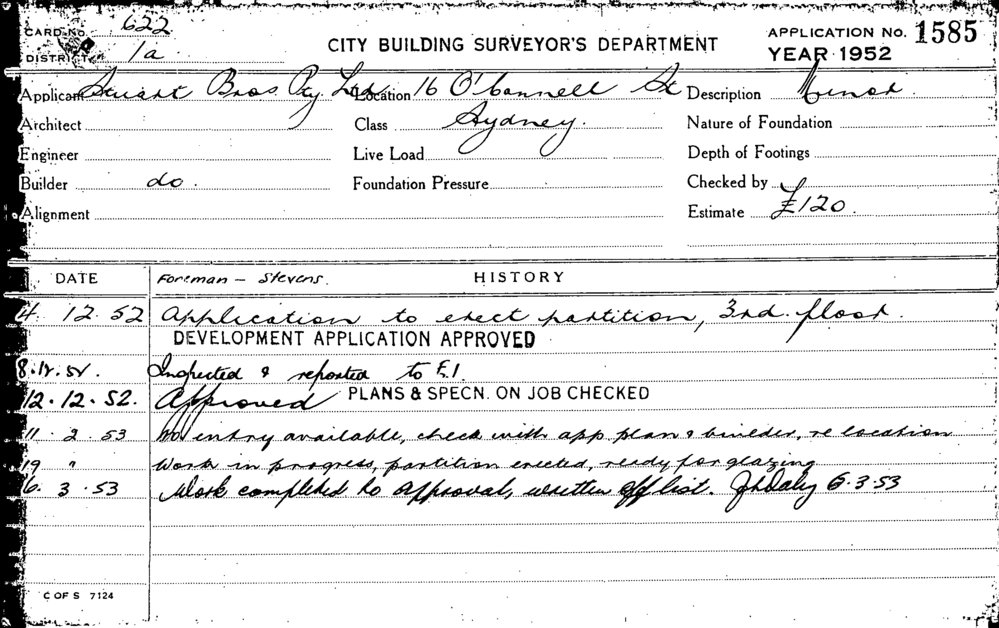 CARD No. 622
DISTRICT 1a
CITY BUILDING SURVEYOR'S DEPARTMENT
APPLICATION No. 1585
YEAR 1952
Applicant Stuart Bros Pty Ltd Location 16 O'Connell St Description Minor
Architect Class Sydney. Nature of Foundation
Engineer Live Load Depth of Footings
Builder do. Foundation Pressure Checked by
Alignment Estimate £120.
DATE Foreman - Stevens. HISTORY
4. 12. 52 Application to erect partition, 3rd. floor.
DEVELOPMENT APPLICATION APPROVED
8.12.52. Inspected & reported to E.I.
12.12.52. Approved PLANS & SPECN. ON JOB CHECKED
11. 2. 53 No entry available, check with app. plan & builder, re location
19 " Work in progress, partition erected, ready for glazing
6. 3. 53 Work completed to approval, written off list. JHDaly 6.3.53
C OF S 7124